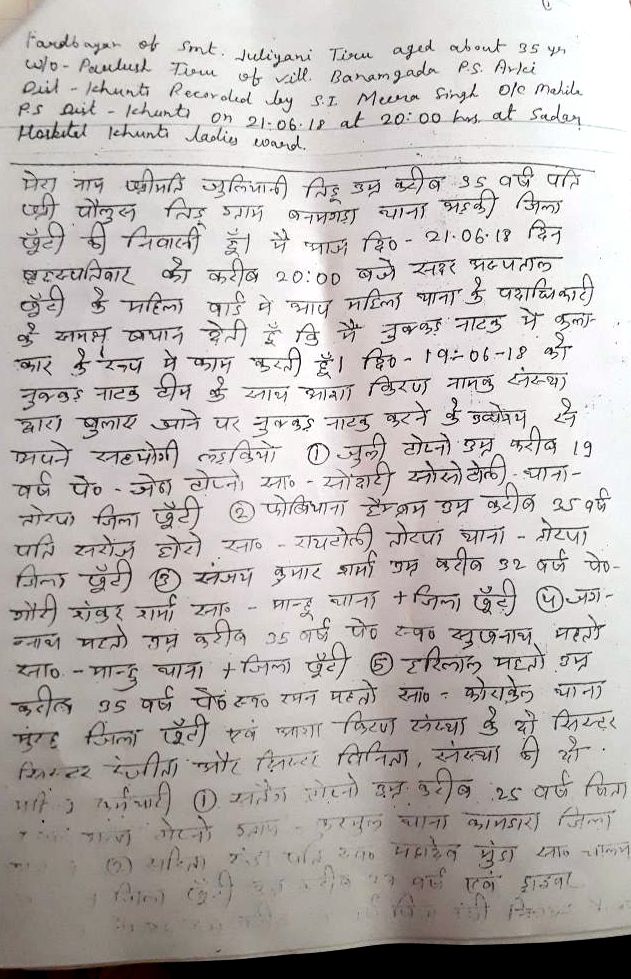 Fardbayan of Smt. Juliyani Tiru aged about 35 yr
W/o - Paulush Tiru of vill. Banamgada P.S. Arki
Dist - Khunti Recorded by S.I Meera Singh O/C Mahila
P.S Dist - Khunti on 21-06-18 at 20:00 hrs. at Sadar
Hoskital Khunti ladies ward.
मेरा नाम श्रीमति जुलियानी तिडू उम्र करीब 35 वर्ष पति
श्री पौलुस तिडू ग्राम बनमगड़ा थाना अड़की जिला
खूँटी की निवासी हूँ। मै आज दि०- 21.06.18 दिन
बृहस्पतिवार को करीब 20:00 बजे सदर अस्पताल
खूँटी के महिला वार्ड मे आप महिला थाना के पदाधिकारी
के समक्ष बयान देती हूँ कि मै नुक्कड़ नाटक मे कला-
कार के रूप मे काम करती हूँ। दि०- 19-06-18 को
नुक्कड़ नाटक टीम के साथ आशा किरण नामक संस्था
द्वारा बुलाए जाने पर नुक्कड़ नाटक करने के उद्येश्य से
अपने सहयोगी लड़कियो ① जुली टोप्नो उम्र करीब 19
वर्ष पे० - जेठा टोप्नो सा० - सोदारी सोसोटोली थाना-
तोरपा जिला खूँटी ② फोबियाना हेम्ब्रम उम्र करीब 35 वर्ष
पति सरोज होरो सा० - रायटोली तोरपा थाना - तोरपा
जिला खूँटी ③ संजय कुमार शर्मा उम्र करीब 32 वर्ष पे०-
गौरी शंकर शर्मा सा० - मान्हू थाना + जिला खूँटी ④ जग-
न्नाथ महतो उम्र करीब 35 वर्ष पे० स्व० महतो
सा०- मान्हु थाना + जिला खूँटी ⑤ हरिलाल महतो उम्र
करीब 35 वर्ष पे० स्व० रमन महतो सा० - थाना
मुरहू जिला खूँटी एवं आशा किरण संस्था के दो सिस्टर
सिस्टर रंजीता और सिस्टर विनिता, संस्था की दो
① टोप्नो उम्र करीब 25 वर्ष पिता
टोप्नो ग्राम थाना कामडारा जिला
② पति स्व० महादेव मुंडा सा०
जिला खूँटी उम्र करीब वर्ष एवं ड्राइवर